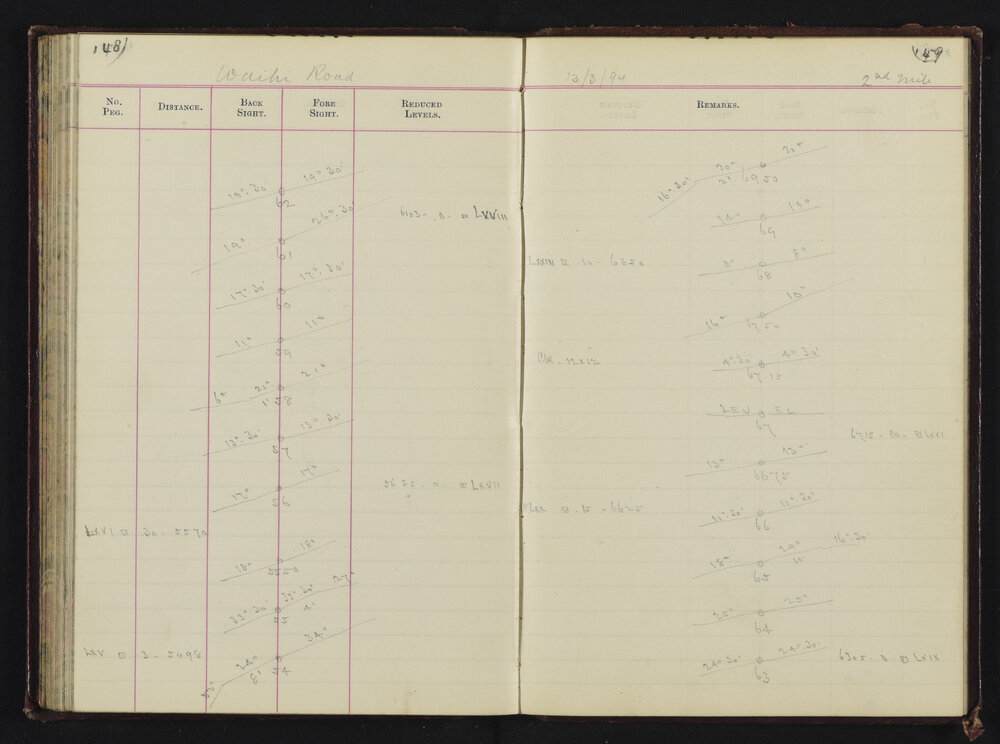 148
Waihi Road
No. Peg. Distance. Back Sight. Fore Sight. Reduced Levels.
19°.30' 19°.30'
62
6103 - 0 - ⊡ LXVIII
19° 26°.30'
61
17°.30' 17°.30'
60
11° 11°
59
6° 21° 21°
1' 58
13°.30' 13°.30'
57
17° 17°
56
5685 - 0 - ⊡ LXVII
LXVI ⊡ 30 - 5570
18° 18°
5550
33°.30' 33°.30' 27°
55 4'
LXV ⊡ 3 - 5498
24° 34°
8' 54
149
13/3/94
2nd Mile
Remarks.
16°.30' 20° 20°
2' 6950
14° 14°
69
LXXII ⊡ 10 - 6850
8° 8°
68
16° 15°
6750
12x12
4°.30' 4°.30'
6715
LEV EL
67
6715 - 50 - ⊡ LXXI
13° 13°
6675
LXX ⊡ 15 - 6625
11°.30' 11°.30'
66
18° 29° 16°.30'
65 10
25° 25°
64
24°.30' 24°.30'
63
6305 - 0 ⊡ LXIX